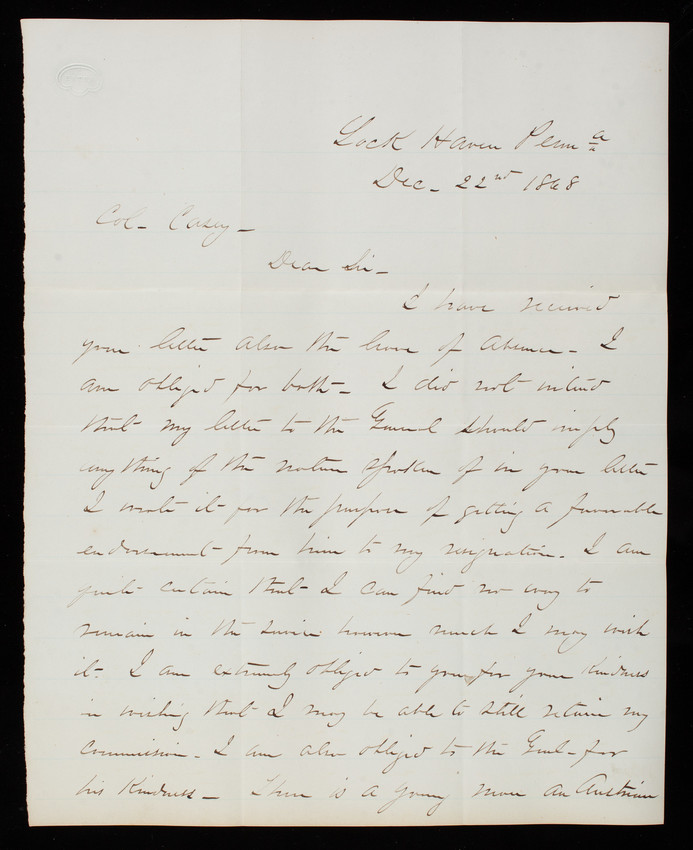 Lock Haven Penna
Dec. 22nd 1868
Col. Casey -
Dear Sir -
I have received
your letter also the leave of absence - I
am obliged for both - I did not intend
that my letter to the General should imply
anything of the nature spoken of in your letter
I wrote it for the purpose of getting a favorable
endorsement from him to my resignation. I am
quite certain that I can find no way to
remain in the service however much I may wish
it. I am extremely obliged to you for your kindness
in wishing that I may be able to still retain my
Commission. I am also obliged to the Genl. for
his kindness - There is a young man an Austrian